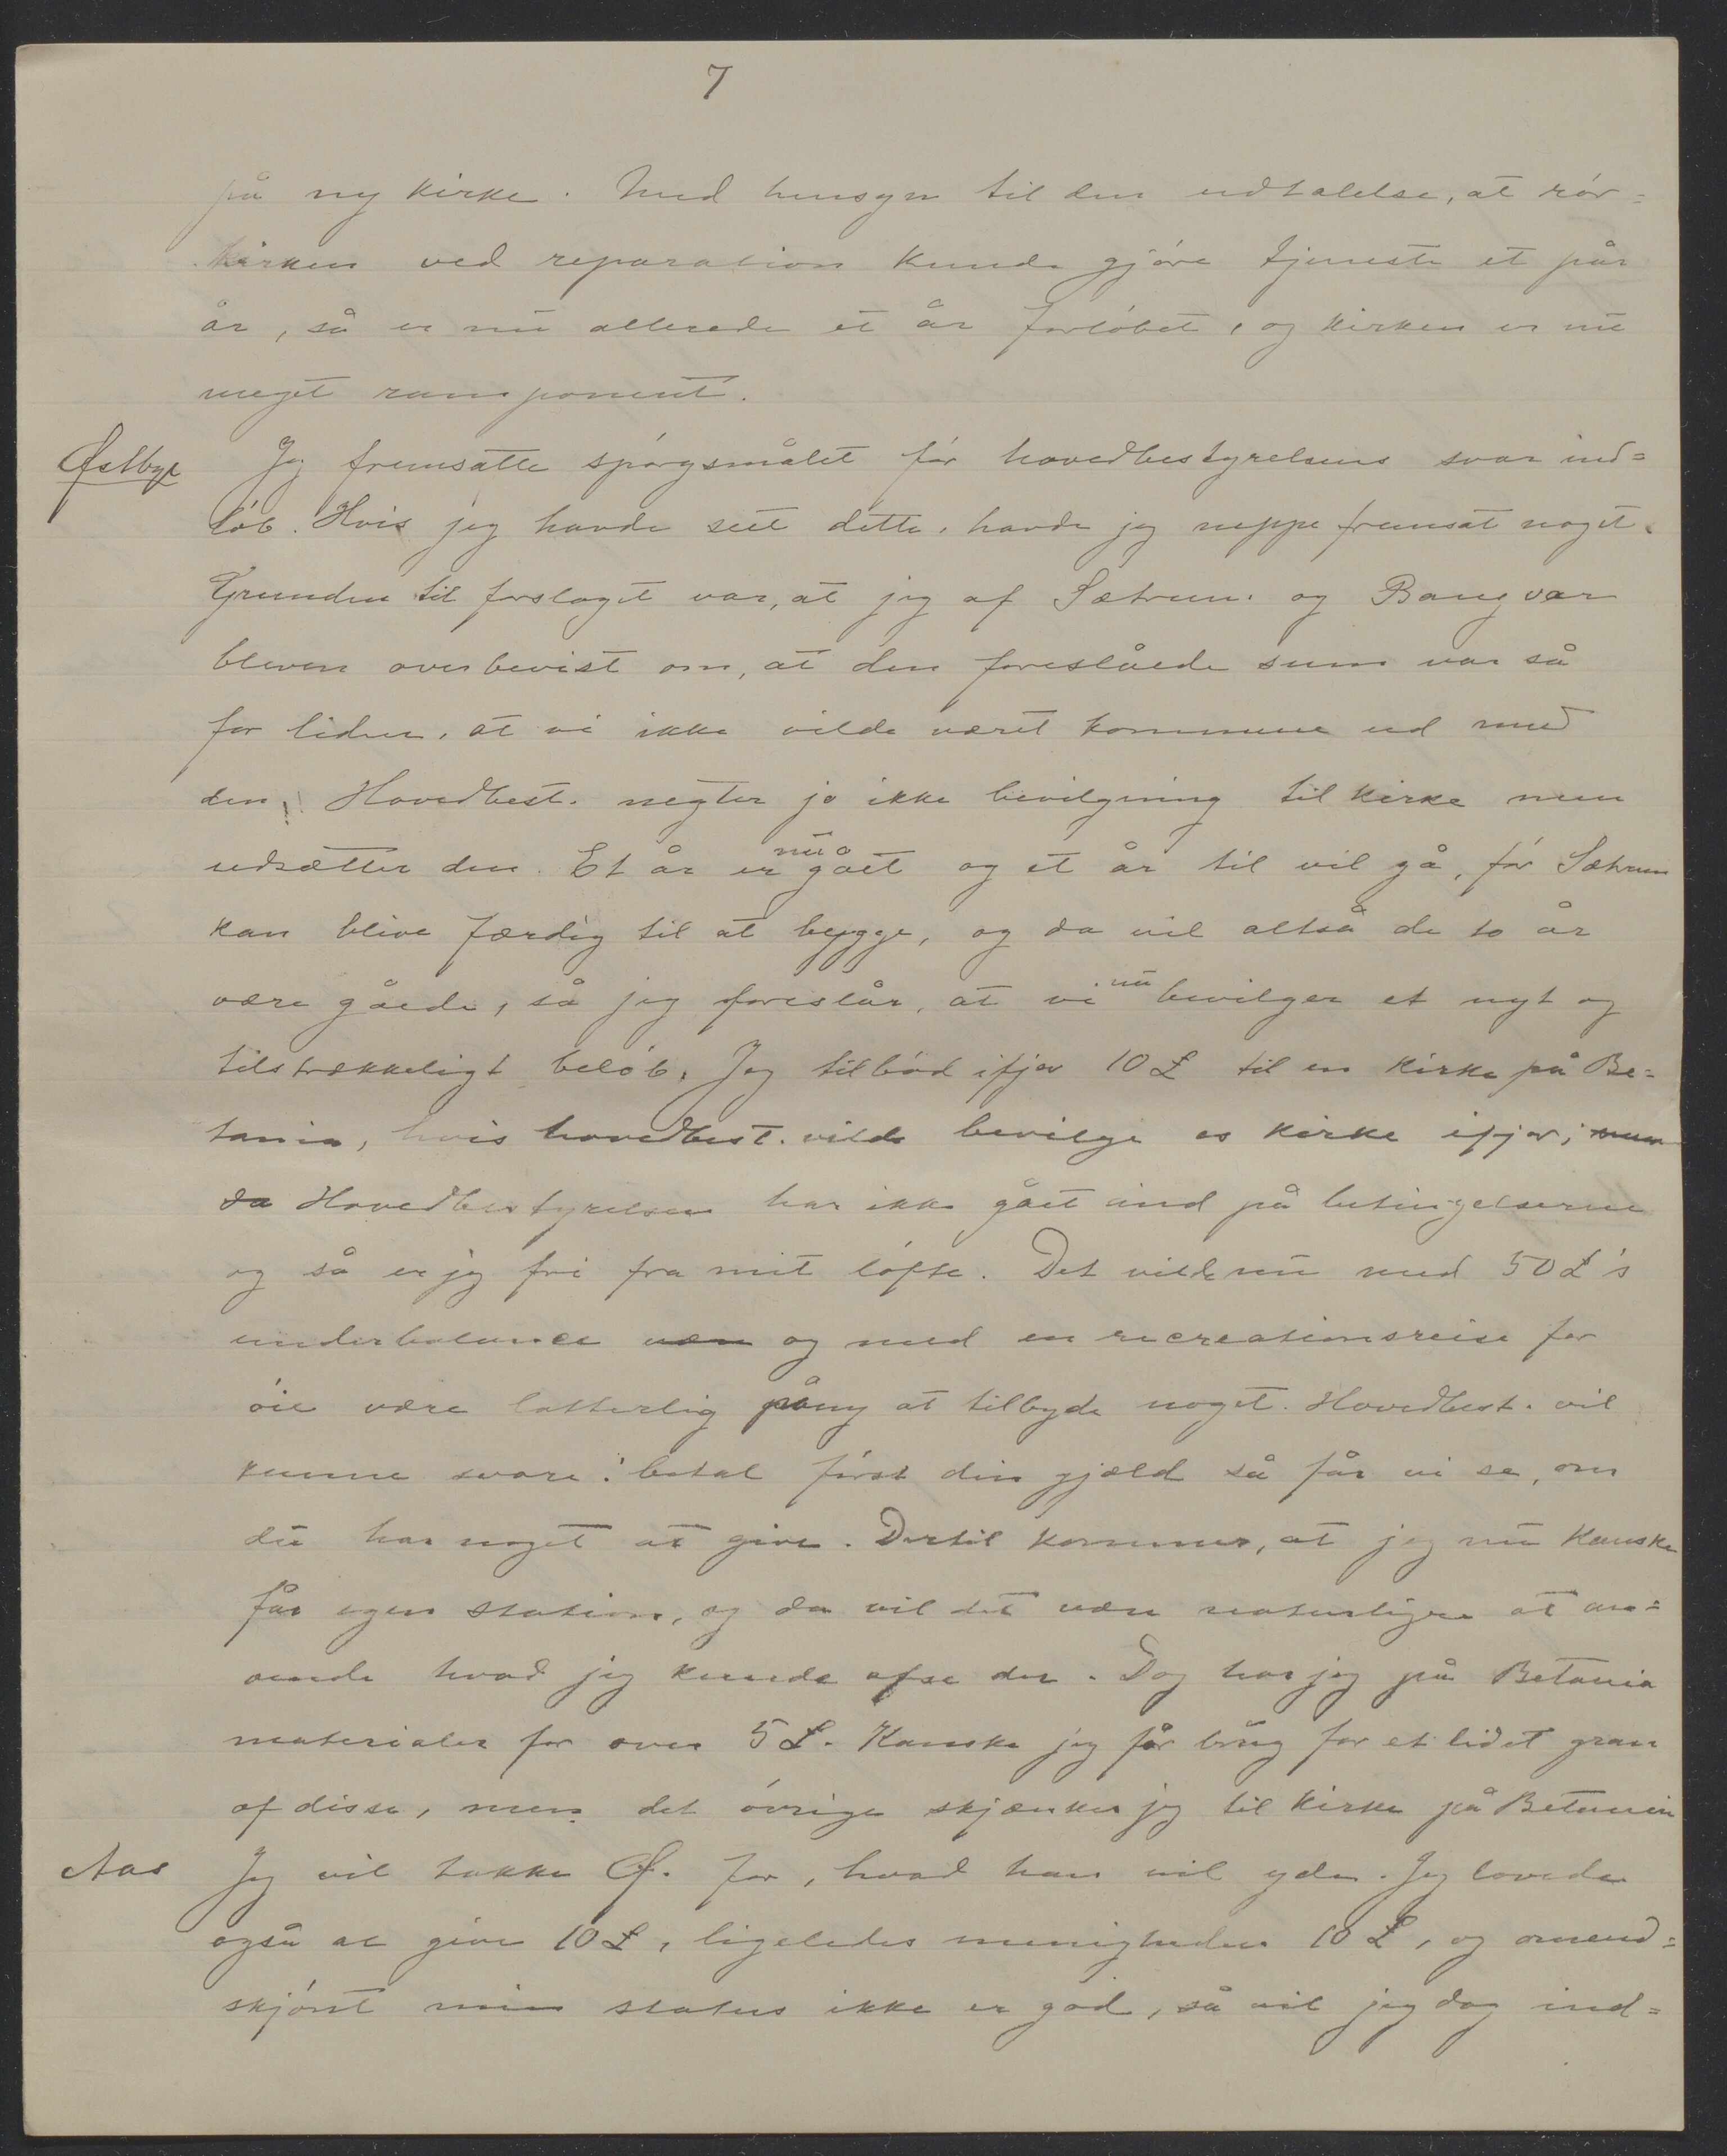 7
på ny kirke. Med hensyn til den udtalelse, at rör=
kirken ved reparation kunde gjöre tjeneste et pår
år, så er nu allerede et år forlöbet, og kirken er nu
meget ramponeret.
Østbye Jeg fremsatte spörgsmålet för hovedbestyrelsens svar ind=
löb. Hvis jeg havde seet dette, havde jeg neppe fremsat noget.
Grunden til forslaget var, at jeg af Sætrum og Bang var
bleven overbevist om, at den foreslåede sum var så
for liden, at vi ikke vilde været kommene ud med
den. Hovedbest. negter jo ikke bevilgning til kirke men
udsætter den. Et år er nu gået og et år til vil gå, för Sætrum
kan blive færdig til at bygge, og da vil altså de to år
være gåede, så jeg foreslår, at vi nu bevilger et nyt og
tilstrækkeligt belöb. Jeg tilböd ifjor 10 £ til en kirke på Be=
tania, hvis hovedbest. vilde bevilge os kirke ifjor; men
da Hovedbestyrelsen har ikke gået ind på betingelserne
og så er jeg fri fra mit löfte. Det vilde nu med 50 £'s
underbalance være og med en recreationsreise for
öie være latterlig påny at tilbyde noget. Hovedbest. vil
kunne svare: betal först din gjæld så får vi se, om
du har noget at give. Dertil kommer, at jeg nu kanske
får egen station, og da vil det være naturligere at an=
vende hvad jeg kunde afse der. Dog har jeg på Betania
materialer for over 5 £. Kanske jeg får brug for et lidet gran
af disse, men det övrige skjænker jeg til kirke på Betania
Aas Jeg vil takke Ø. for, hvad han vil yde. Jeg lovede
også at give 10 £, ligeledes menigheden 10 £, og omend=
skjönt min status ikke er god, så vil jeg dog ind=